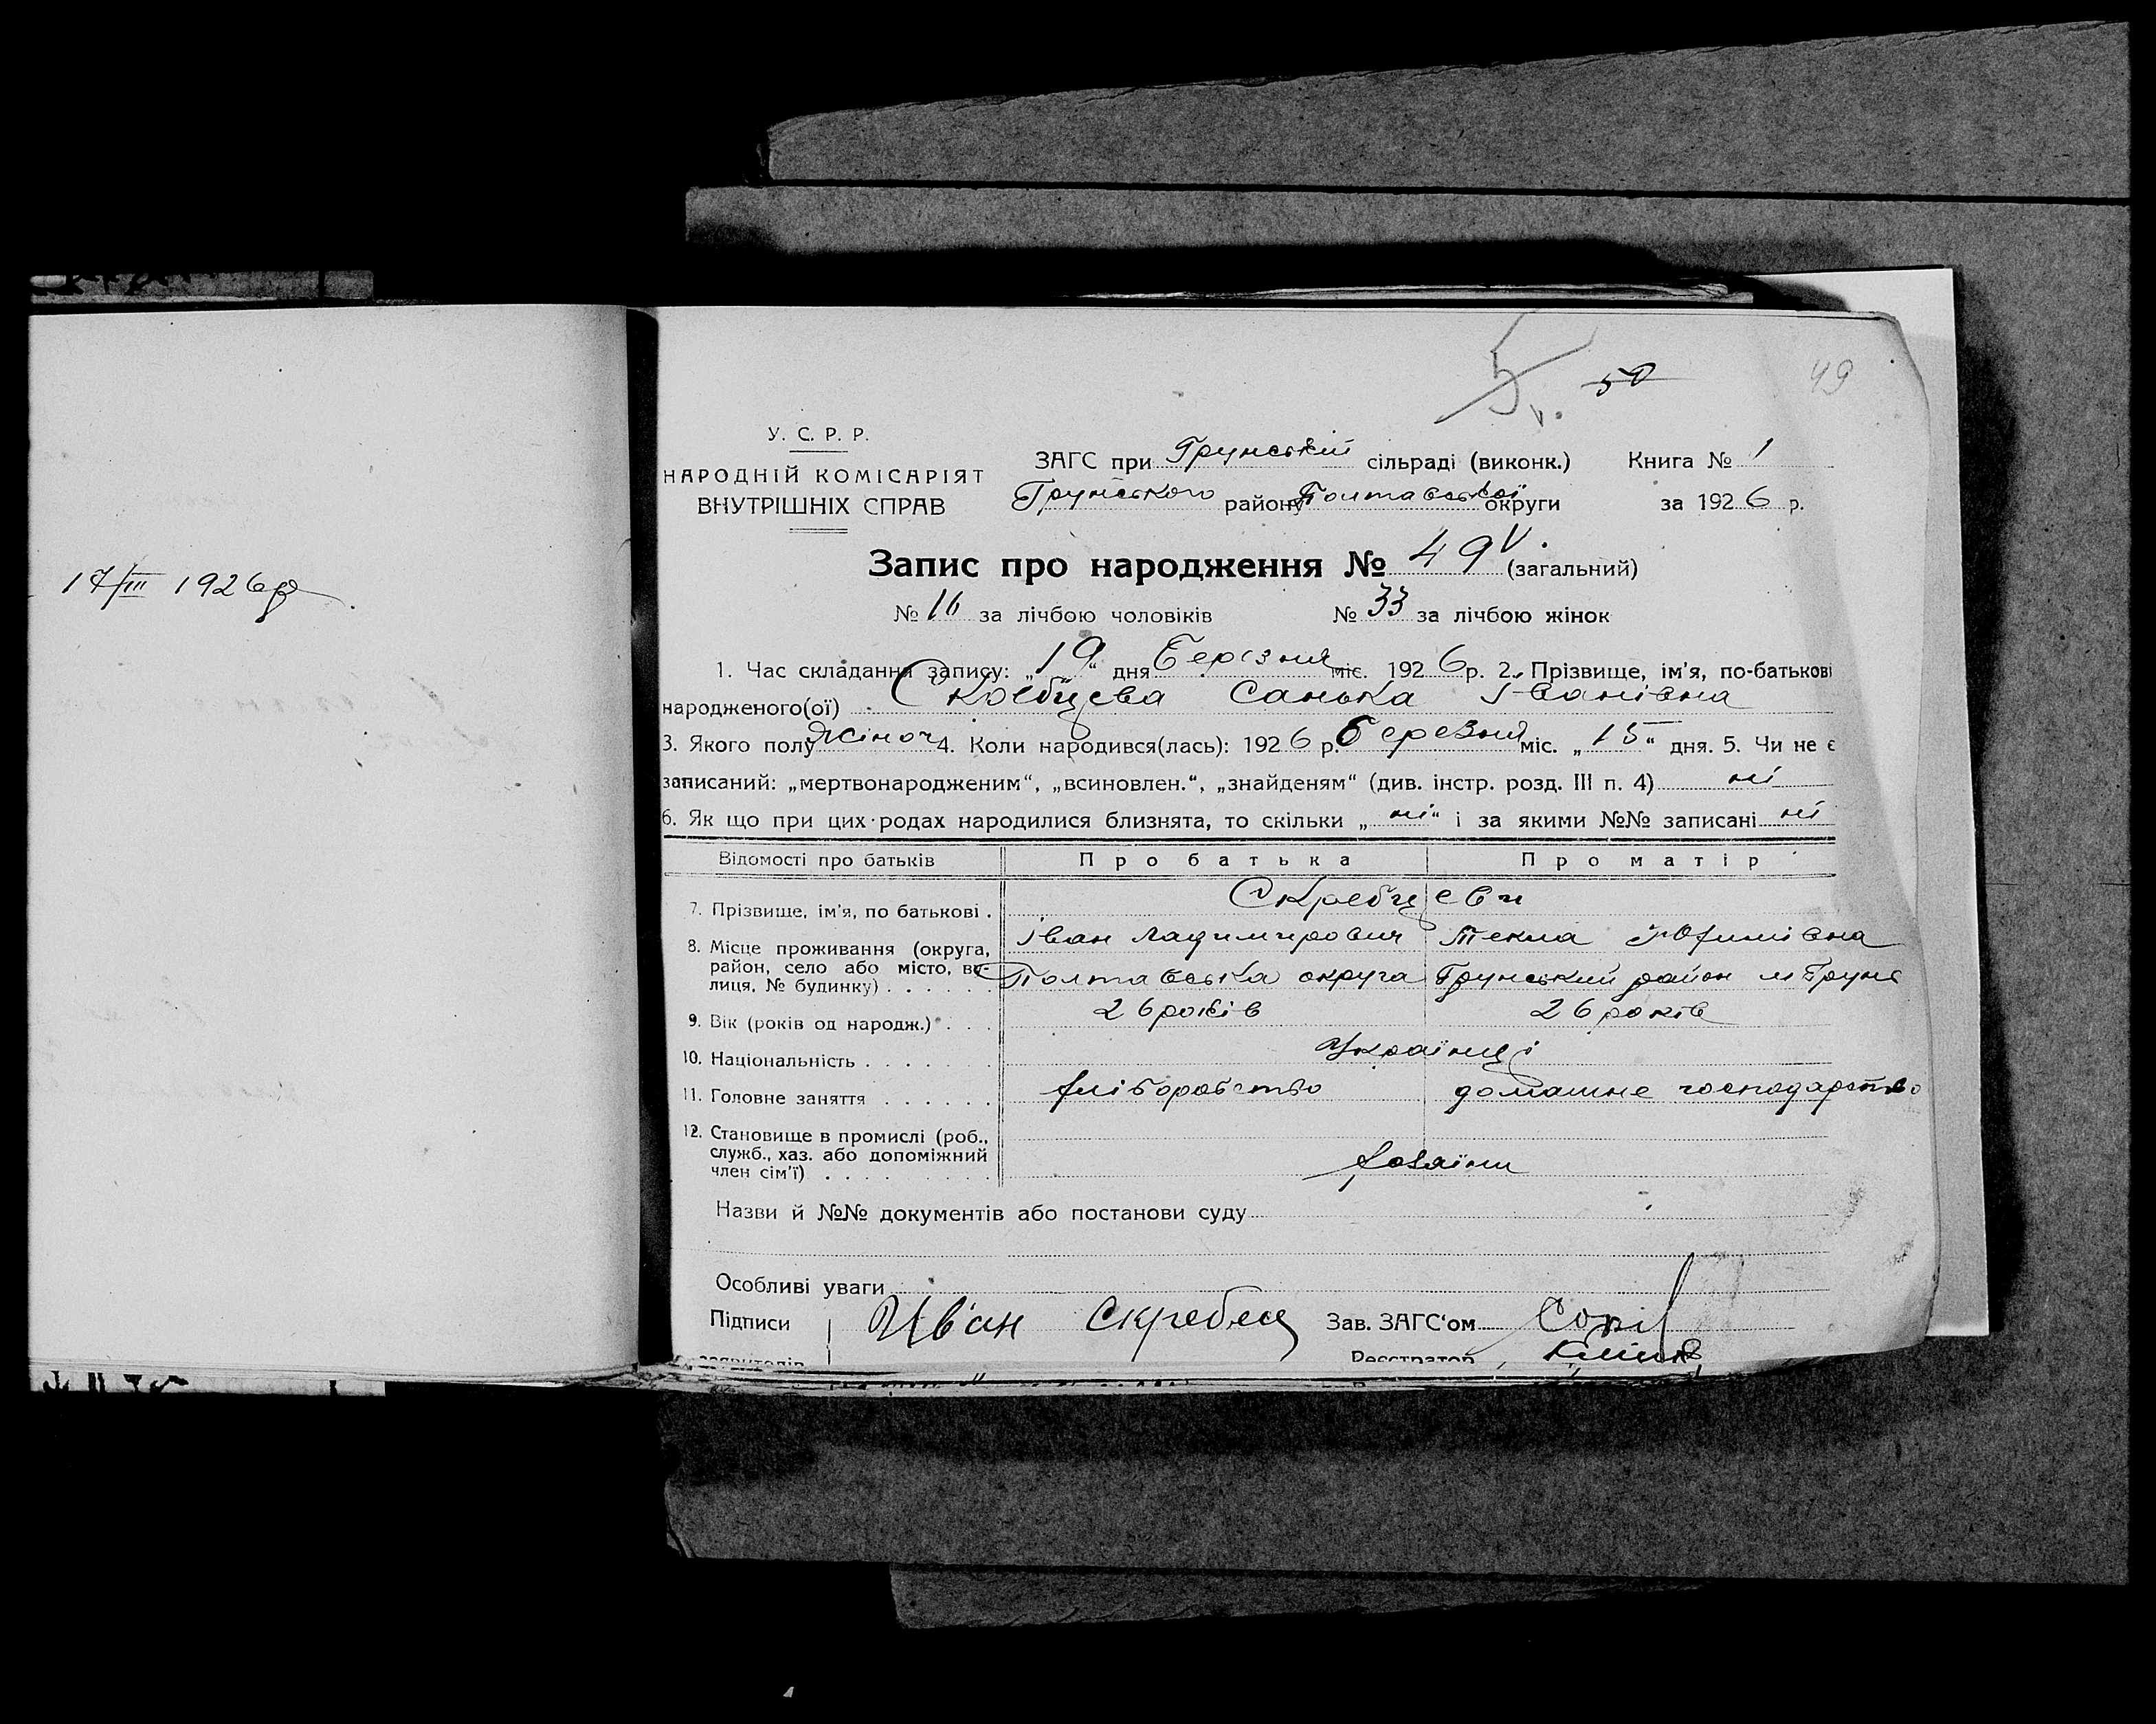 5
50
49
У. С. Р. Р.
НАРОДНІЙ КОМІСАРІЯТ
ВНУТРІШНІХ СПРАВ
ЗАГС при Грунській сільраді (виконк.) Книга № 1
Грунського району Полтавської округи за 1926 р.
17/III 1926 р
Запис про народження № 49 (загальний)
№ 16 за лічбою чоловіків № 33 за лічбою жінок
1. Час складання запису: „19“ дня Березня міс. 1926 р. 2. Прізвище, ім’я, по-батькові
народженого(ої) Скребцева Санька Іванівна
3. Якого полу жіноч 4. Коли народився(лась): 1926 р. березня міс. „15“ дня. 5. Чи не є
записаний: „мертвонародженим“, „всиновлен.“, „знайденям“ (див. інстр. розд. III п. 4) ні
6. Як що при цих родах народилися близнята, то скільки „ні“ і за якими №№ записані ні
Відомості про батьків Про батька Про матір
7. Прізвище, ім’я, по батькові . Скребцеви
Іван Ладимирович Текла Юхимівна
8. Місце проживання (округа,
район, село або місто, ву-
лиця, № будинку) . . . . . . Полтавська округа Грунський район м Грунь
9. Вік (років од народж.) . . . 26 років 26 років
10. Національність . . . . . . . Українці
11. Головне заняття . . . . . . хліборобство домашне господарство
12. Становище в промислі (роб.,
служб., хаз. або допоміжний
член сім’ї) . . . . . . . . . хозяїни
Назви й №№ документів або постанови суду
Особливі уваги
Підписи Иван Скребец Зав. ЗАГС'ом
заявителів Реєстратор